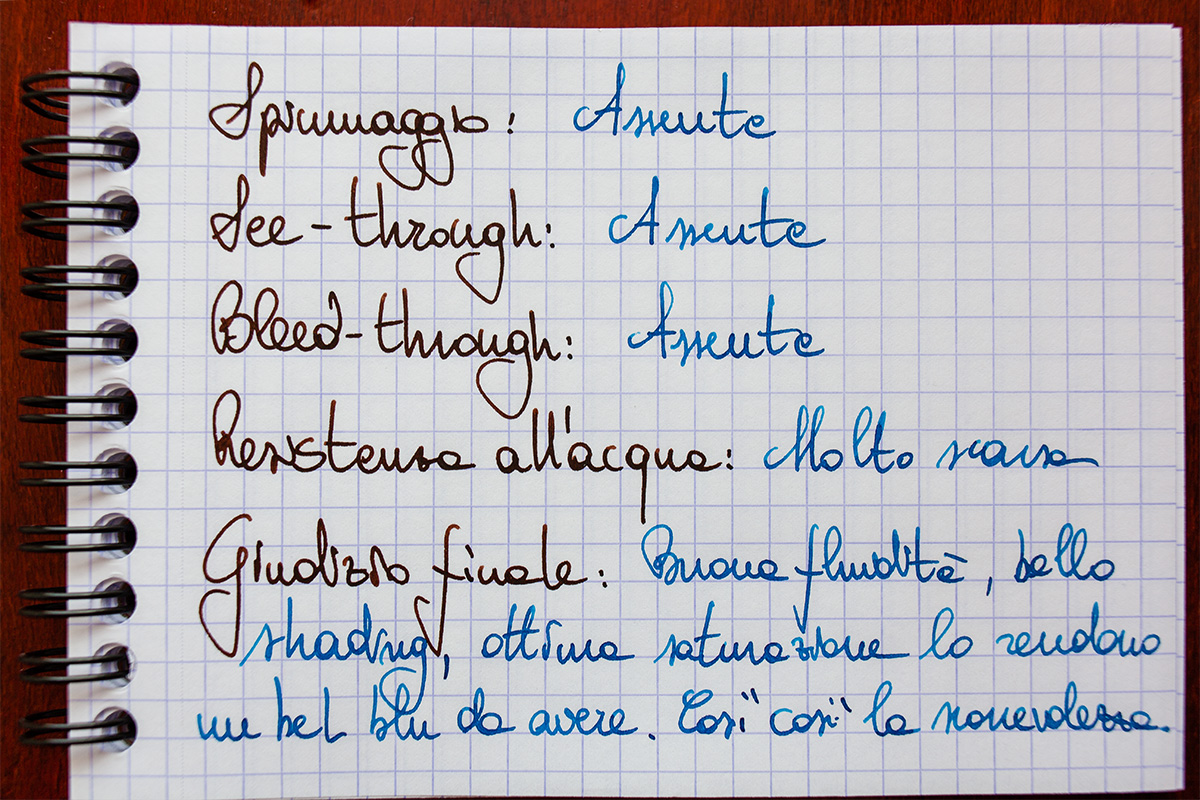 Spiumaggio: Assente
See-through: Assente
Bleed-through: Assente
Resistenza all'acqua: Molto scarsa
Giudizio finale: Buona fluidità, bello
shading, ottima saturazione lo rendono
un bel blu da avere. Così così la scorrevolezza.